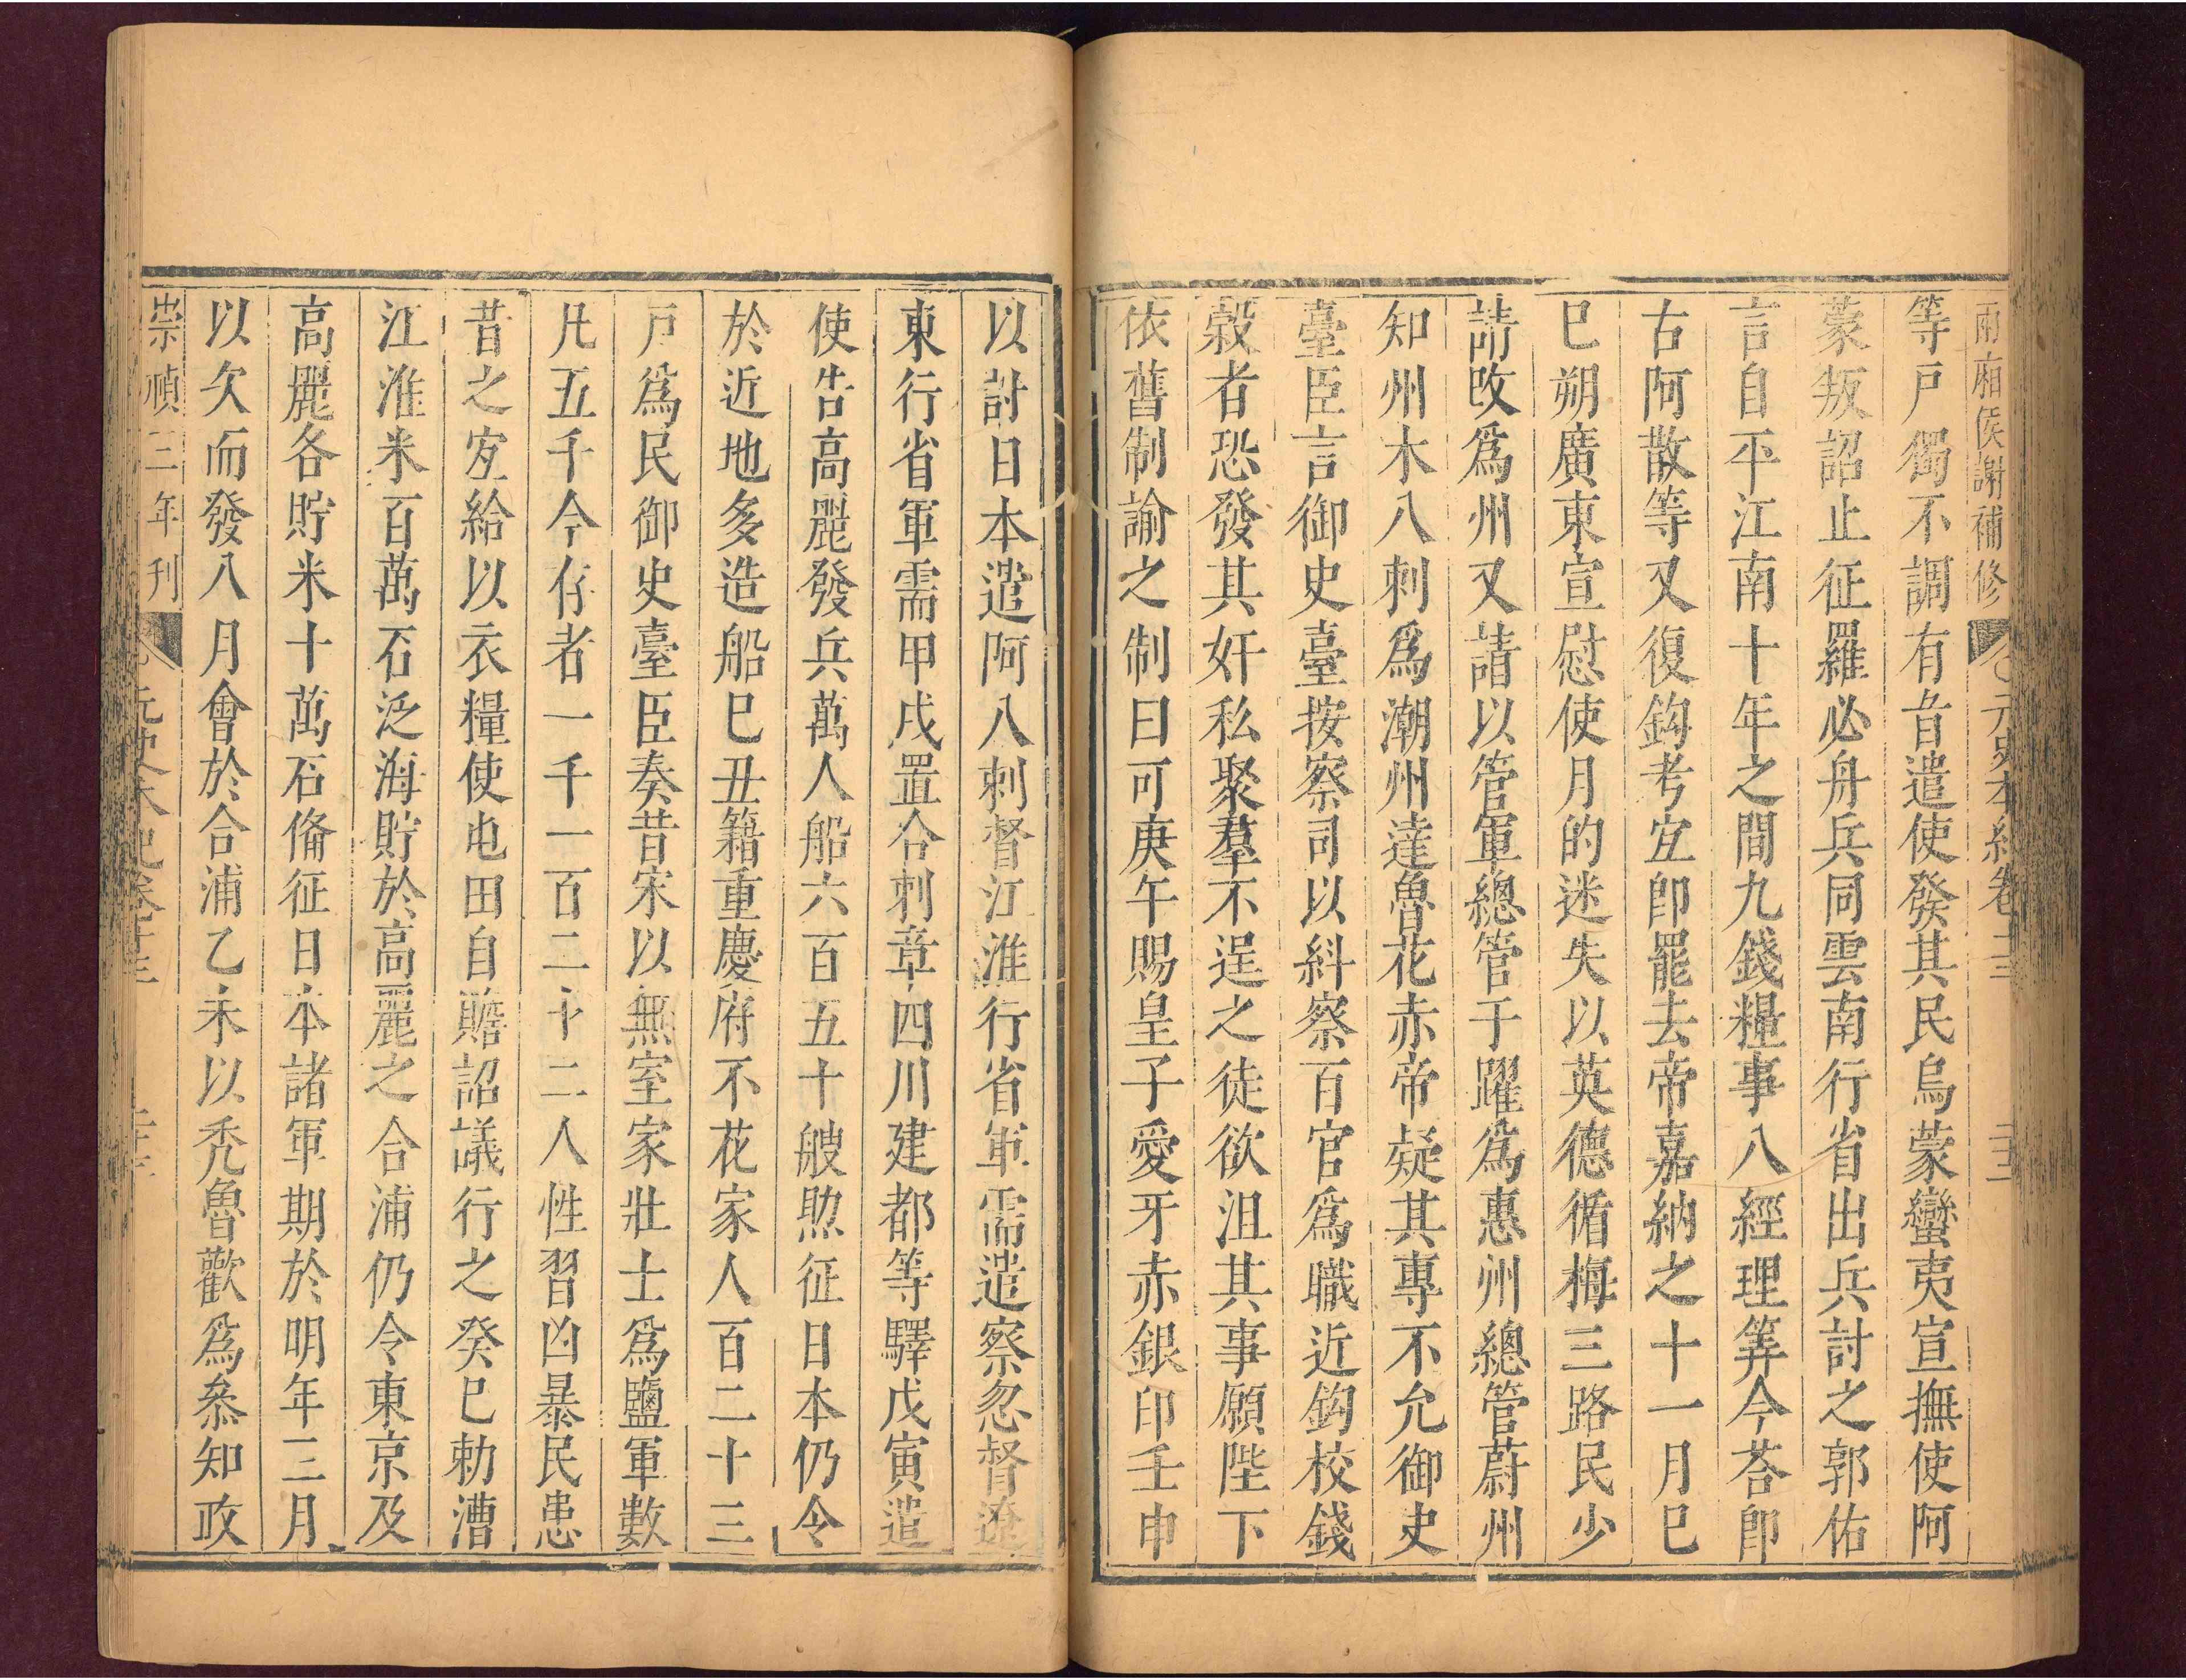 兩廂侯謝補修 元史本紀卷十三
等戸獨不調有旨遣使發其民烏蒙蠻夷宣撫使阿
蒙叛詔止征羅必舟兵同雲南行省出兵討之郭佑
言自平江南十年之間九錢糧事八經理筭今荅卽
古阿散等又復鈎考宐卽罷去帝嘉納之十一月巳
巳朔廣東宣慰使月的迷失以英德循梅三路民少
請改爲州又請以管軍總管于躍爲惠州總管蔚州
知州木八刺爲潮州達魯花赤帝疑其專不允御史
臺臣言御史臺按察司以糾察百官爲職近鈎校錢
榖者恐發其奸私聚羣不逞之徒欲沮其事願陛下
依舊制諭之制曰可庚午賜皇子愛牙赤銀印壬申
以討日本遣阿八刺督江淮行省軍需遣察忽督遼
東行省軍需甲戌置合刺章四川建都等驛戊寅遣
使告高麗發兵萬人船六百五十艘助征日本仍令
於近地多造船巳丑籍重慶府不花家人百二十三
戸爲民御史臺臣奏昔宋以無室家壯士爲鹽軍數
凡五千今存者一千一百二十二人性習凶暴民患
昔之宐給以衣糧使屯田自贍詔議行之癸巳勅漕
江淮米百萬石泛海貯於高麗之合浦仍令東京及
高麗各貯米十萬石俻征日本諸軍期於明年三月
以次而發八月會於合浦乙未以禿魯歡爲叅知政
崇禎三年刊 元史本紀卷十三